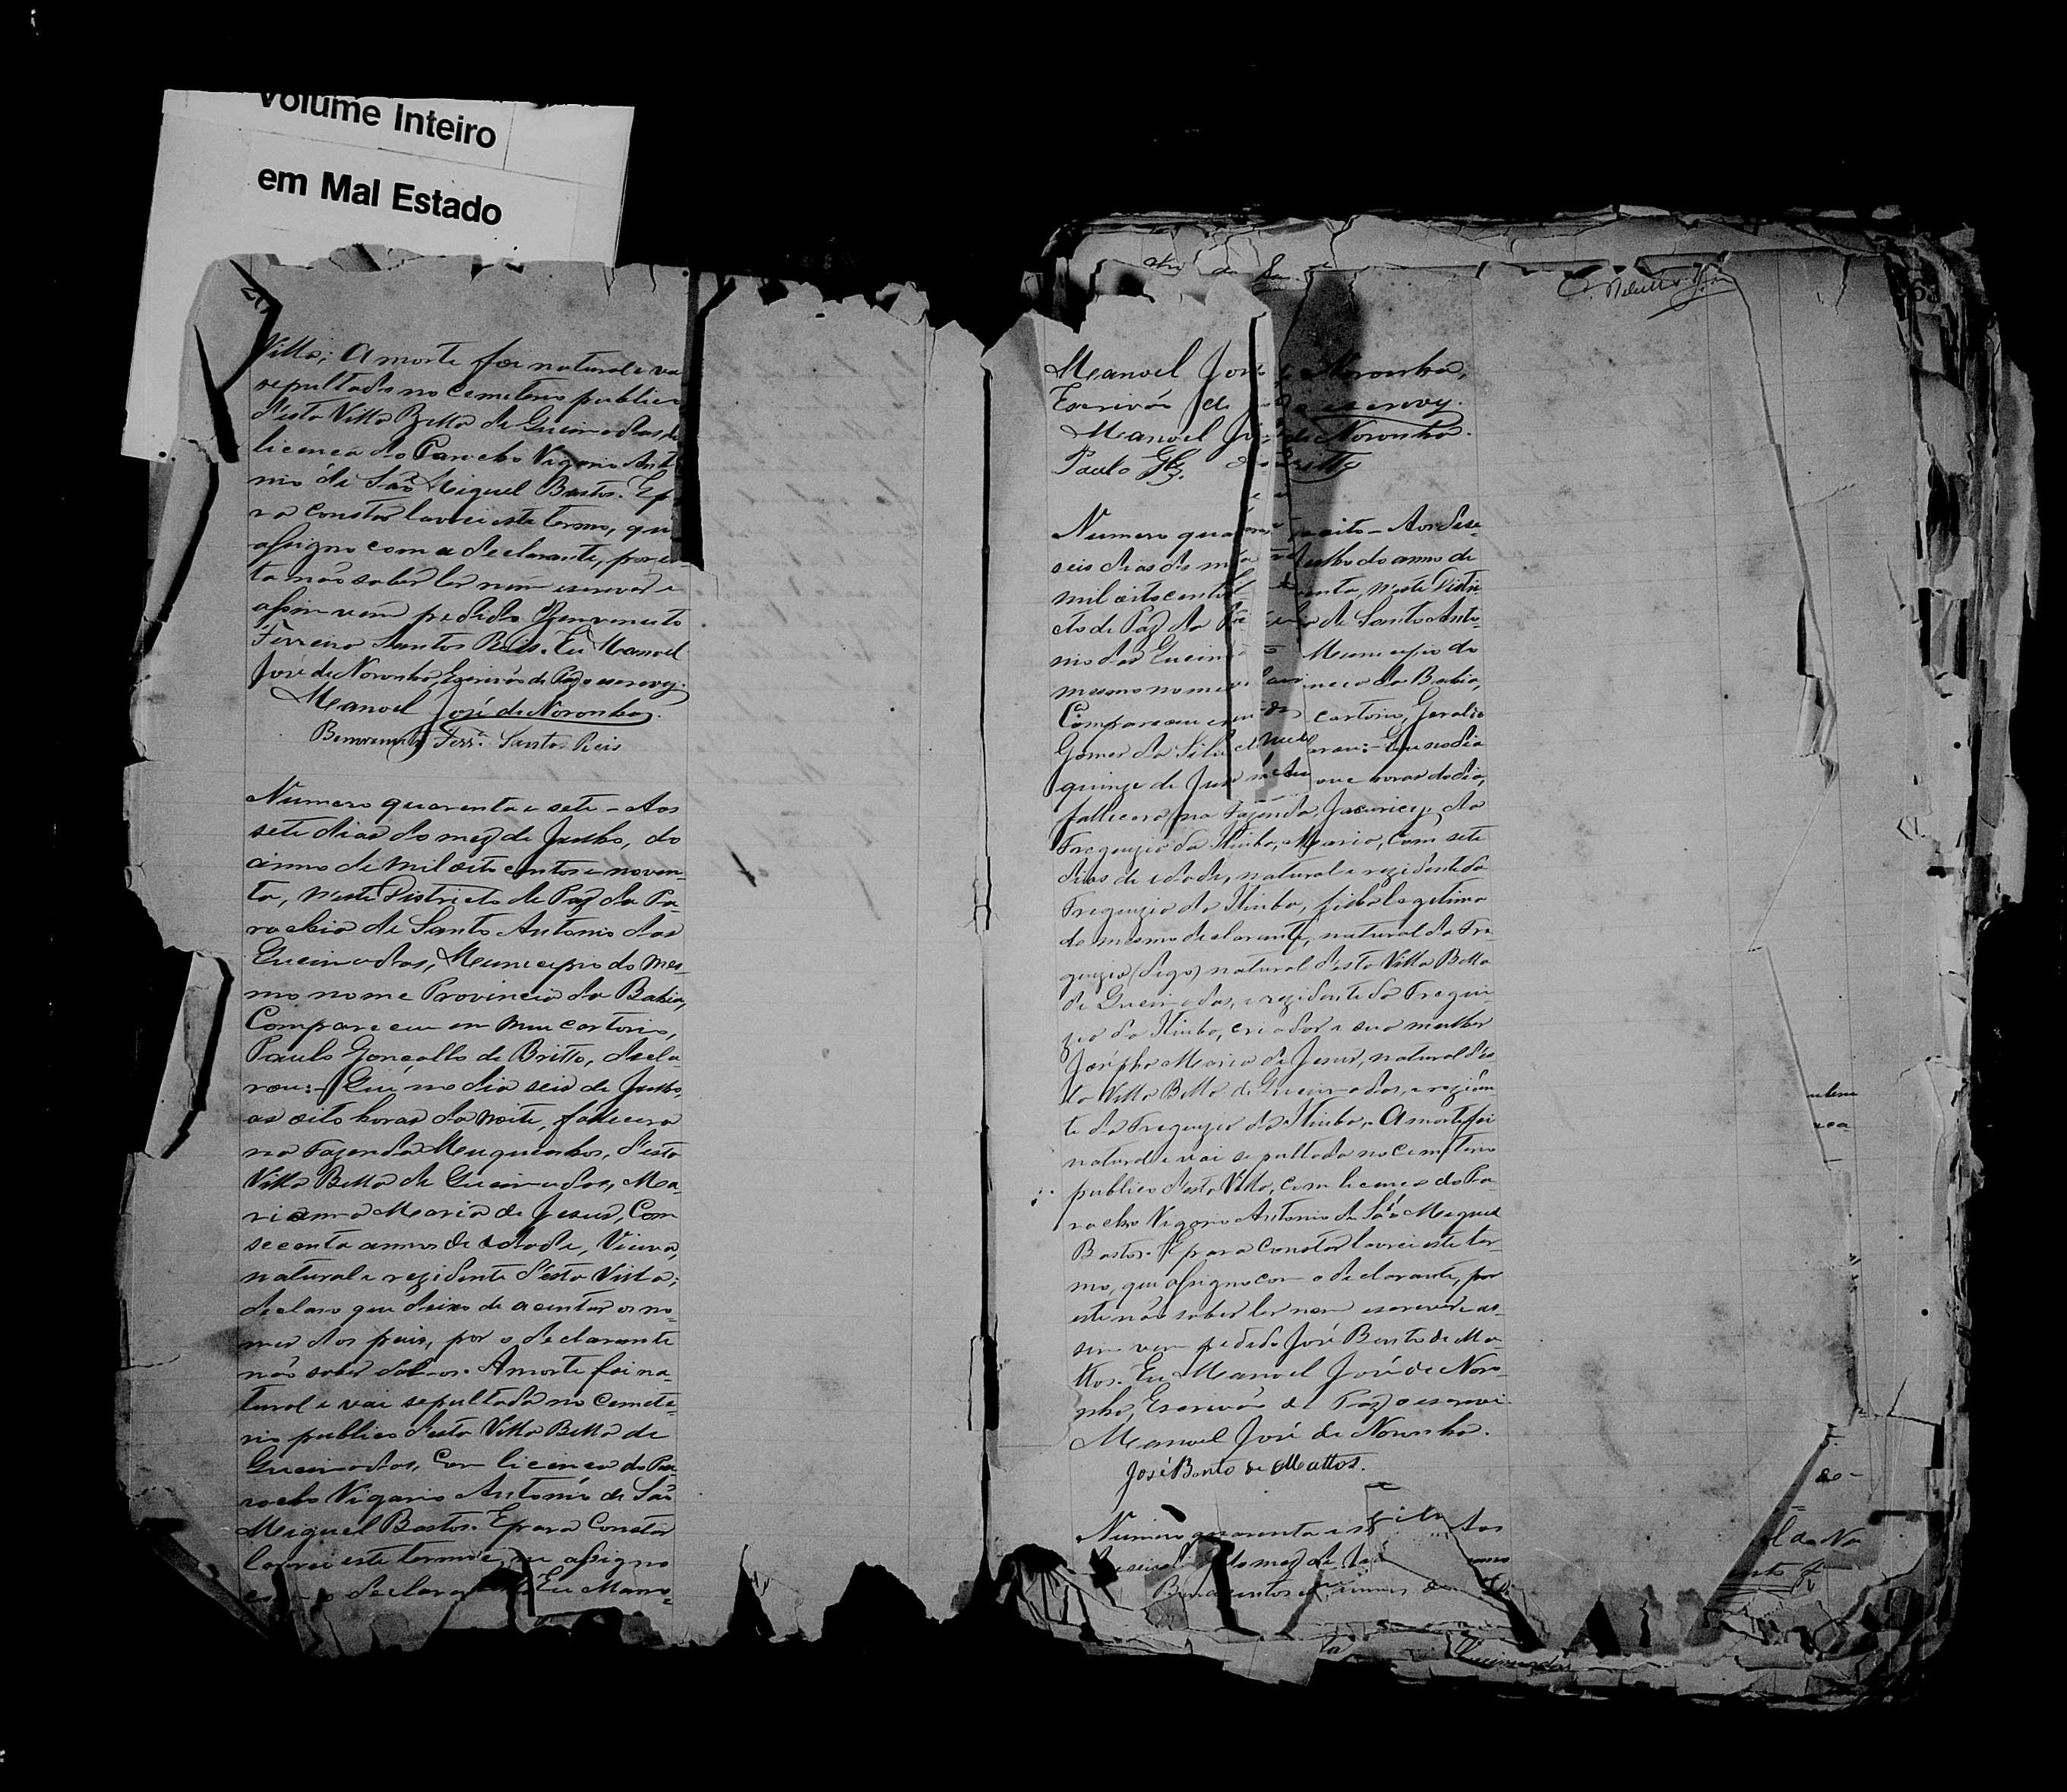 Volume Inteiro
em Mal Estado
Villa; A morte foi natural e vai
sepultada no Cemiterio publico
d'esta Villa Bella de Queimadas, de
licença do Parocho Vigario Anto
nio de São Miguel Bastos. E pa
ra constar lavrei este termo, que
assigno com a declarante, por es
ta não saber ler nem escrever e
assim vem pedido Benvenuto
Ferreira Santos Reis. Eu Manoel
José de Noronha, Escrivão de Paz o escrevy.
Manoel José de Noronha.
Benvenuto Ferrª. Santos Reis
Numero quarenta e sete - Aos
sete dias do mez de Junho, do
anno de mil oito centos e noven-
ta, n'este Districto de Paz da Pa-
rochia de Santo Antonio das
Queimadas, Municipio do mes-
mo nome Provincia da Bahia,
Compareceu em meu cartorio,
Paulo Gonçallo de Britto, decla-
rou:- Que no dia seis de Junho,
as oito horas da noite, fallecera
na Fazenda d'esta
Villa Bella de Queimadas, Ma-
rianna Maria de Jesus, Com
secenta annos de edade, Viuva,
natural e rezidente d'esta Villa;
declaro que deixo de acentar os no-
mes dos pais, por o declarante
não saber dal-os. A morte foi na-
tural e vai sepultada no Cemite-
rio publico d'esta Villa Bella de
Queimadas, Com licença do Pa-
rocho Vigario Antonio de São
Miguel Bastos. E para Constar
lavrei este termo que assigno
com o declarante Eu Mano-
Manoel José de Noronha,
Escrivão de Paz o escrevy.
Manoel José de Noronha.
Paulo Glz. de Britto
Numero quarenta e oito - Aos deze-
seis dias do mez de Junho do anno de
mil oitocentos e noventa, n'este Distri-
cto de Paz da Parochia de Santo Anto-
nio das Queimadas Municipio do
mesmo nome Provincia da Bahia,
Compareceu em meu cartorio, Geraldo
Gomes da Silva e declarou:- Que no dia
quinze de Junho as nove horas do dia,
fallecera na Fazenda Jacuricy, da
Freguezia da Itiuba, Maria, Com sete
dias de edade, natural e rezidente da
Freguezia da Itiuba, filha legitima
do mesmo declarante, natural da Fre-
guezia (digo) natural d'esta Villa Bella
de Queimadas, e rezidente da Fregue-
zia da Itiuba, criador e sua mulher
Josépha Maria de Jesus, natural d'es-
ta Villa Bella de Queimadas, e reziden-
te da Freguezia da Itiuba. A morte foi
natural e vai sepultada no Cemiterio
publico d'esta Villa, com licença do Pa-
rocho Vigario Antonio de São Miguel
Bastos. E para Constar lavrei este ter-
mo, que assigno com o declarante, por
este não saber ler nem escrever e as-
sim vem pedido José Bento de Ma-
ttos. Eu Manoel José de Noro-
nha, Escrivão de Paz o escrevi
Manoel José de Noronha.
José Bento de Mattos.
Numero quarenta e Aos
do mez de
Queimadas